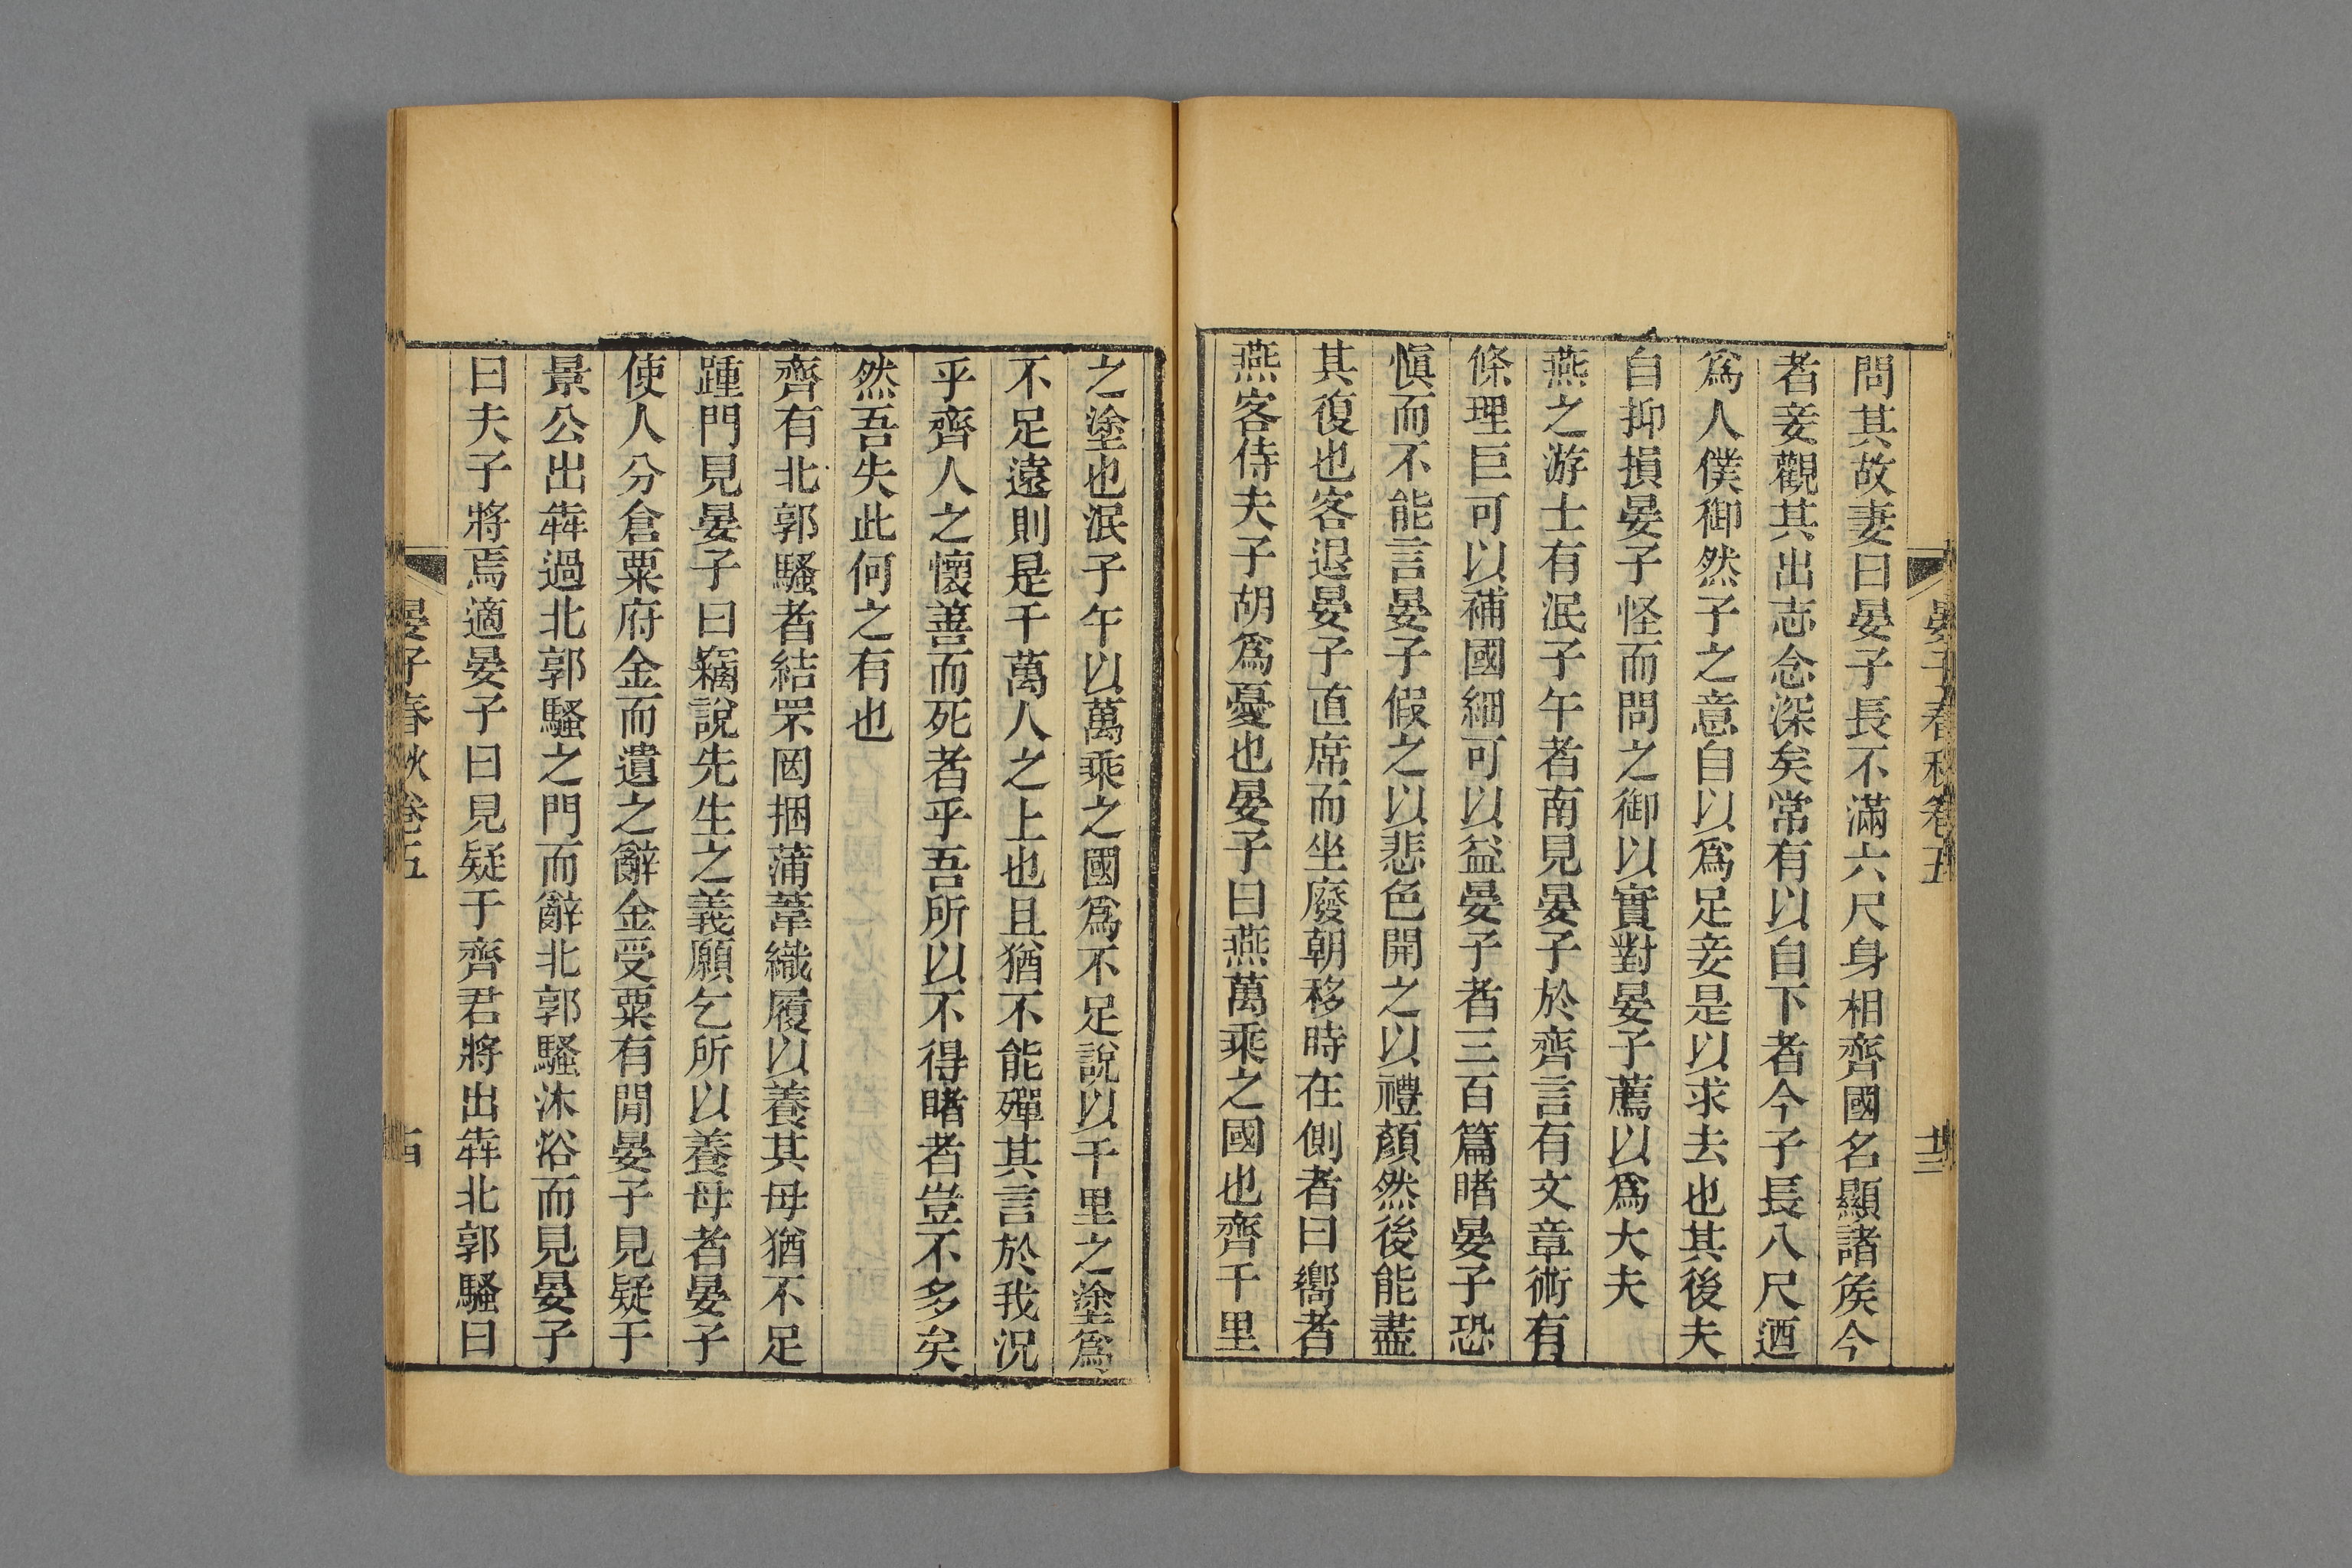 晏子春秋卷五
十三
問其故妻曰晏子長不滿六尺身相齊國名顯諸矦今
者妾觀其出志念深矣常有以自下者今子長八尺迺
爲人僕御然子之意自以爲足妾是以求去也其後夫
自抑損晏子怪而問之御以實對晏子薦以爲大夫
燕之游士有泯子午者南見晏子於齊言有文章術有
條理巨可以補國細可以益晏子者三百篇睹晏子恐
愼而不能言晏子假之以悲色開之以禮顏然後能盡
其復也客退晏子直席而坐廢朝移時在側者曰嚮者
燕客侍夫子胡爲憂也晏子曰燕萬乘之國也齊千里
之塗也泯子午以萬乘之國爲不足說以千里之塗爲
不足遠則是千萬人之上也且猶不能殫其言於我況
乎齊人之懷善而死者乎吾所以不得睹者豈不多矣
然吾失此何之有也
齊有北郭騷者結罘罔捆蒲葦織履以養其母猶不足
踵門見晏子曰竊說先生之義願乞所以養母者晏子
使人分倉粟府金而遺之辭金受粟有閒晏子見疑于
景公出犇過北郭騷之門而辭北郭騷沐浴而見晏子
曰夫子將焉適晏子曰見疑于齊君將出犇北郭騷曰
晏子春秋卷五
十四